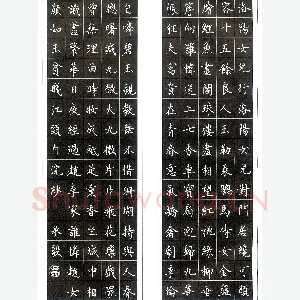 洛陽女兒行洛陽女兒對門居纔可容
顏十五餘良人玉勒乘驄馬侍女金盤
鱠鯉魚畫閣朱樓盡相望紅桃綠柳垂
簷向羅帷送上七香車寶扇迎歸九華
帳狂夫富貴在青春意氣驕奢劇季倫
自憐碧玉親教舞不惜珊瑚持與人春
窗曙滅九微火九微片片飛花璅戲罷
曾無理曲時妝成祗是熏香坐城中相
識盡繁華日夜經過趙李家誰憐越女
顏如玉貧賤江頭自浣紗